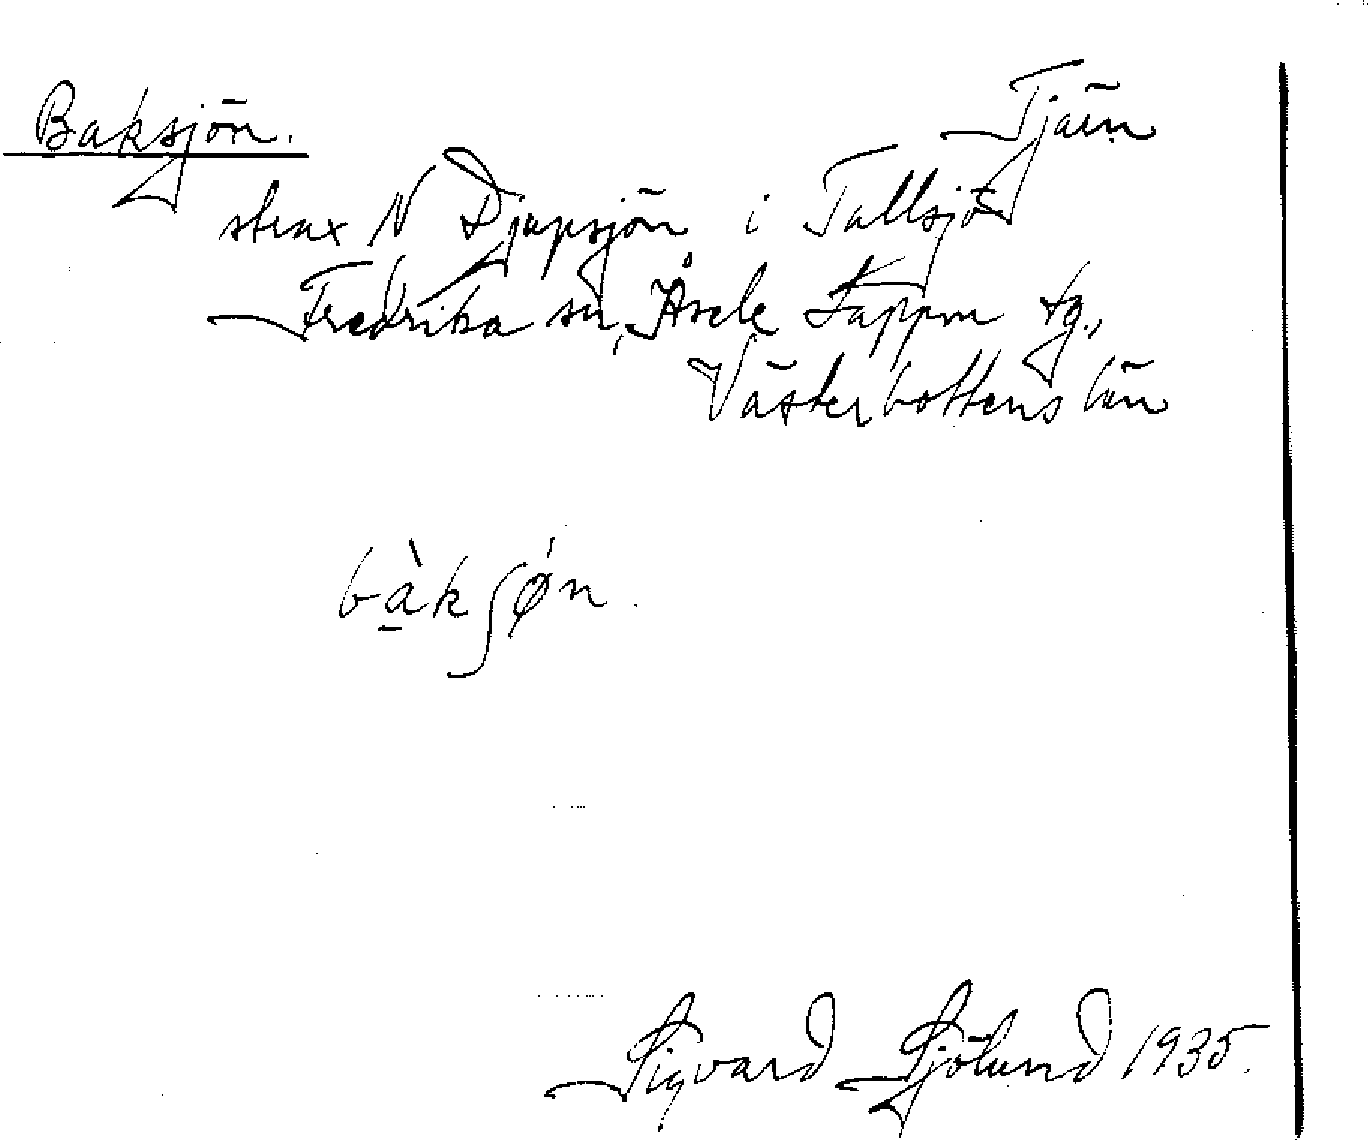 Baksjön. Tjärn
strax N Djupsjön i Tallsjö
Fredrika sn, Åsele Lappm tg.,
Västerbottens län
bàkʃøn.
Sigvard Sjölund 1935.